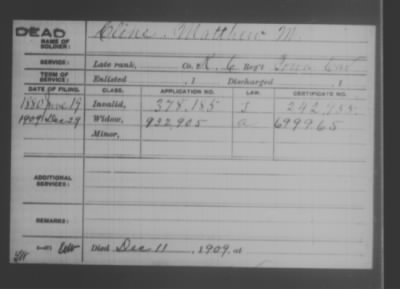 DEAD
NAME OF SOLDIER: Cline, Matthew M.
SERVICE: Late rank, Co. K, 6 Reg't Cav
TERM OF SERVICE: Enlisted , 1 Discharged , 1
DATE OF FILING. CLASS. APPLICATION NO. LAW. CERTIFICATE NO.
1880 June 19 Invalid, 378.185
1909 Dec 29 Widow, 932,905 a 699965
Minor,
ADDITIONAL SERVICES:
REMARKS:
Died Dec 11, 1909, at